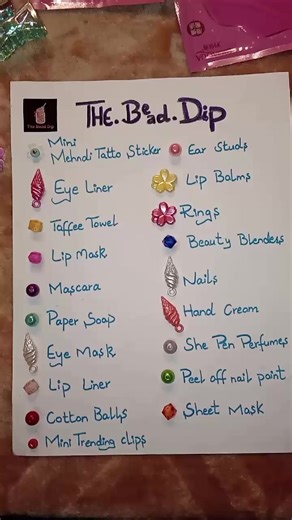 The Bead Dip
THE.Bead.Dip
Mini
Mehndi Tatto Sticker
Eye Liner
Taffee Towel
Lip Mask
Mascara
Paper Soap
Eye Mask
Lip Liner
Cotton Balls
Mini Trending clips
Ear Studs
Lip Balms
Rings
Beauty Blenders
Nails
Hand Cream
She Pen Perfumes
Peel off nail paint
Sheet Mask